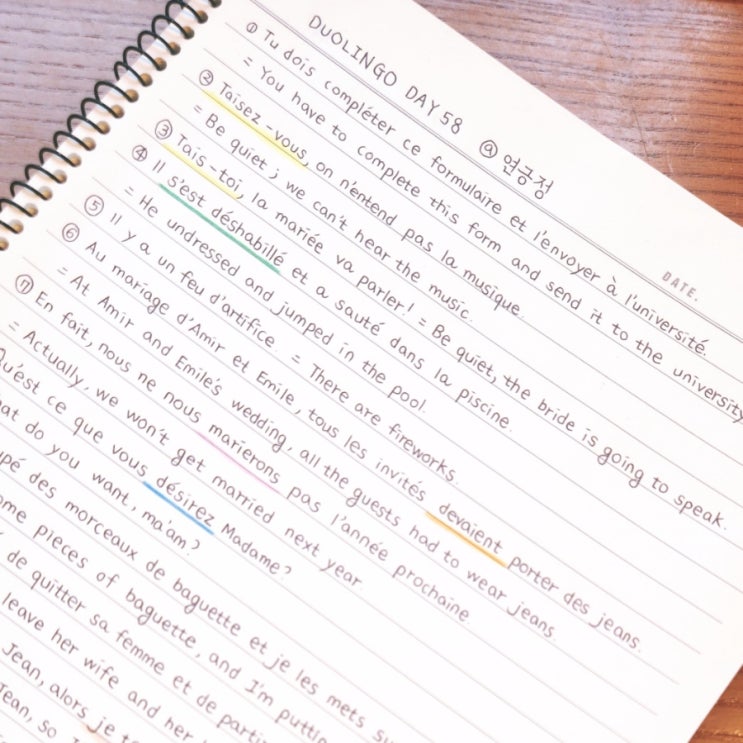 DUOLINGO DAY 58 @연긍정
DATE.
① Tu dois compléter ce formulaire et l'envoyer à l'université.
= You have to complete this form and send it to the university
② Taisez-vous, on n'entend pas la musique.
= Be quiet ; we can't hear the music.
③ Tais-toi, la mariée va parler! = Be quiet, the bride is going to speak.
④ Il s'est déshabillé et a sauté dans la piscine.
= He undressed and jumped in the pool.
⑤ Il y a un feu d'artifice. = There are fireworks.
⑥ Au mariage d'Amir et Emile, tous les invités devaient porter des jeans.
= At Amir and Emile's wedding, all the guests had to wear jeans.
⑦ En fait, nous ne nous marierons pas l'année prochaine
= Actually, we won't get married next year.
Qu'est ce que vous désirez Madame?
do you want, ma'am?
des morceaux de baguette et je les mets
pieces of baguette, and I'm
de quitter sa femme et de
leave her wife and her
Jean, alors je
Jean, so